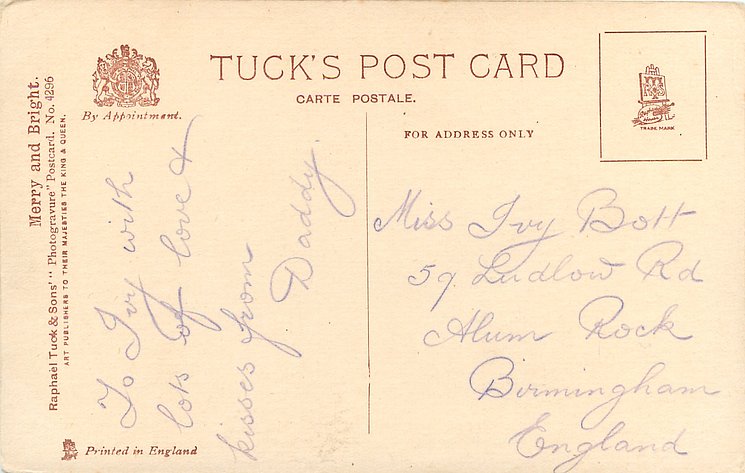 TUCK'S POST CARD
CARTE POSTALE.
By Appointment.
FOR ADDRESS ONLY
TRADE MARK
Merry and Bright.
Raphael Tuck & Sons' "Photogravure" Postcard. No. 4296
ART PUBLISHERS TO THEIR MAJESTIES THE KING & QUEEN.
To Ivy with
lots of love &
kisses from
Daddy.
Miss Ivy Bott
59 Ludlow Rd
Alum Rock
Birmingham
England
Printed in England